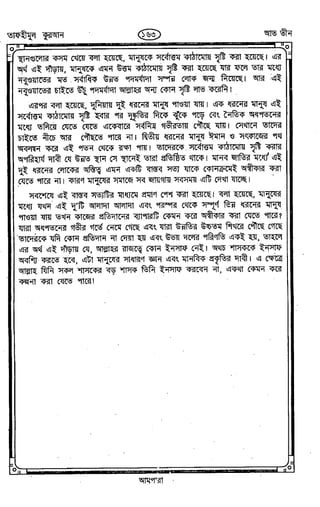 তাফহীমুল কুরআন
১৬৩
আত তীন
স্থানগুলোর কসম খেয়ে বলা হয়েছে, মানুষকে সর্বোত্তম কাঠামোয় সৃষ্টি করা হয়েছে। এর
অর্থ এই দাঁড়ায়, মানুষকে এমন উত্তম কাঠামোয় সৃষ্টি করা হয়েছে যার ফলে তার মধ্যে
নবুওয়াতের মত সর্বাধিক উন্নত পদমর্যাদা সম্পন্ন লোক জন্ম নিয়েছে। আর এই
নবুওয়াতের চাইতে উঁচু পদমর্যাদা আল্লাহর অন্য কোন সৃষ্টি লাভ করেনি।
এরপর বলা হয়েছে, দুনিয়ায় দুই ধরনের মানুষ পাওয়া যায়। এক ধরনের মানুষ এই
সর্বোত্তম কাঠামোয় সৃষ্টি হবার পর দুষ্কৃতির দিকে ঝুঁকে পড়ে এবং নৈতিক অধপতনের
মধ্যে তলিয়ে যেতে যেতে একেবারে সর্বনিম্ন গভীরতায় পৌঁছে যায়। সেখানে তাদের
চাইতে নীচে আর পৌঁছতে পারে না। দ্বিতীয় ধরনের মানুষ ঈমান ও সৎকাজের পথ
অবলম্বন করে এই পতন থেকে রক্ষা পায়। তাদেরকে সর্বোত্তম কাঠামোয় সৃষ্টি করার
অপরিহার্য দাবী যে উন্নত স্থান সে স্থানেই তারা প্রতিষ্ঠিত থাকে। মানব জাতির মধ্যে এই
দুই ধরনের লোকের অস্তিত্ব এমন একটি বাস্তব সত্য যাকে কোনক্রমেই অস্বীকার করা
যেতে পারে না। কারণ মানুষের সমাজে সব জায়গায় সবসময় এটি দেখা যাচ্ছে।
সবশেষে এই বাস্তব সত্যটির মাধ্যমে প্রমাণ পেশ করা হয়েছে। বলা হয়েছে, মানুষের
মধ্যে যখন এই দু'টি আলাদা আলাদা এবং পরস্পর থেকে সম্পূর্ণ ভিন্ন ধরনের মানুষ
পাওয়া যায় তখন কাজের প্রতিদানের ব্যাপারটি কেমন করে অস্বীকার করা যেতে পারে?
যারা অধপতনের গভীর গর্তে নেমে গেছে এবং যারা উন্নতির উচ্চতম শিখরে পৌঁছে গেছে
তাদেরকে যদি কোন প্রতিদান না দেয়া হয় এবং উভয় দলের পরিণতি একই হয়, তাহলে
এর অর্থ এই দাঁড়ায় যে, আল্লাহর রাজত্বে কোন ইনসাফ নেই। অথচ শাসককে ইনসাফ
অবশ্যি করতে হবে, এটা মানুষের সাধারণ জ্ঞান এবং মানবিক প্রকৃতির দাবী। এ ক্ষেত্রে
আল্লাহ যিনি সকল শাসকের বড় শাসক তিনি ইনসাফ করবেন না, একথা কেমন করে
কল্পনা করা যেতে পারে!
আমপারা